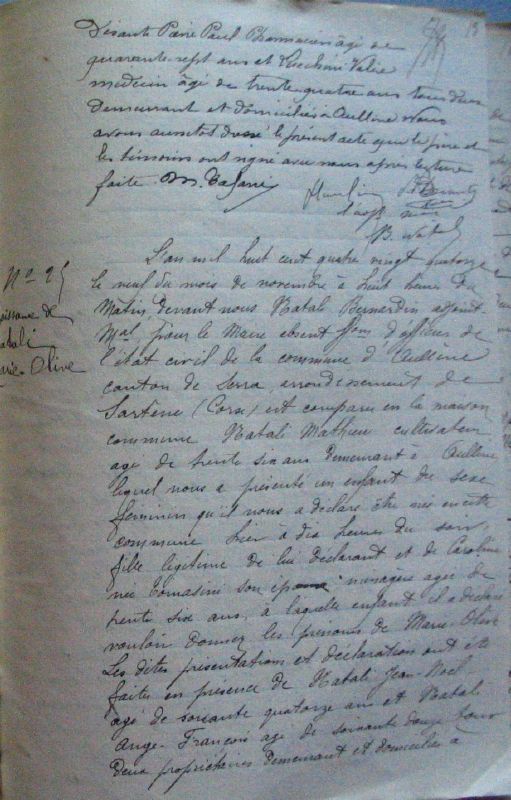 Pierre Paul Pharmacien âgé de
quarante-sept ans et Valère
médecin âgé de trente quatre ans tous deux
demeurant et domiciliés à Aullène Nous
avons aussitôt dressé le présent acte que le père et
les témoins ont signé avec nous après lecture
faite. M. Tafani
15
L'an mil huit cent quatre vingt quatorze
le neuf du mois de novembre à huit heures du
Nº 25
Matin devant nous Natali Bernardin adjoint
Naissance de
Mal, pour le Maire absent fons d'officier de
Natali
l'état civil de la commune d'Aullène
Marie-Olive
canton de Serra, arrondissement de
Sartène (Corse) est comparu en la maison
commune Natali Mathieu cultivateur
âgé de trente six ans demeurant à Aullène
lequel nous a présenté un enfant de sexe
féminin qu'il nous a déclaré être née en cette
commune hier à dix heures du soir,
fille légitime de lui déclarant et de Caroline
née Tomasini son épouse ménagère agée de
trente six ans, à laquelle enfant il a déclaré
vouloir donner les prénoms de Marie-Olive
Les dites présentations et déclaration ont été
faites en présence de Natali Jean-Noël
âgé de soixante quatorze ans et Natali
Ange-François âgé de soixante douze tous
deux propriétaires demeurant et domiciliés à